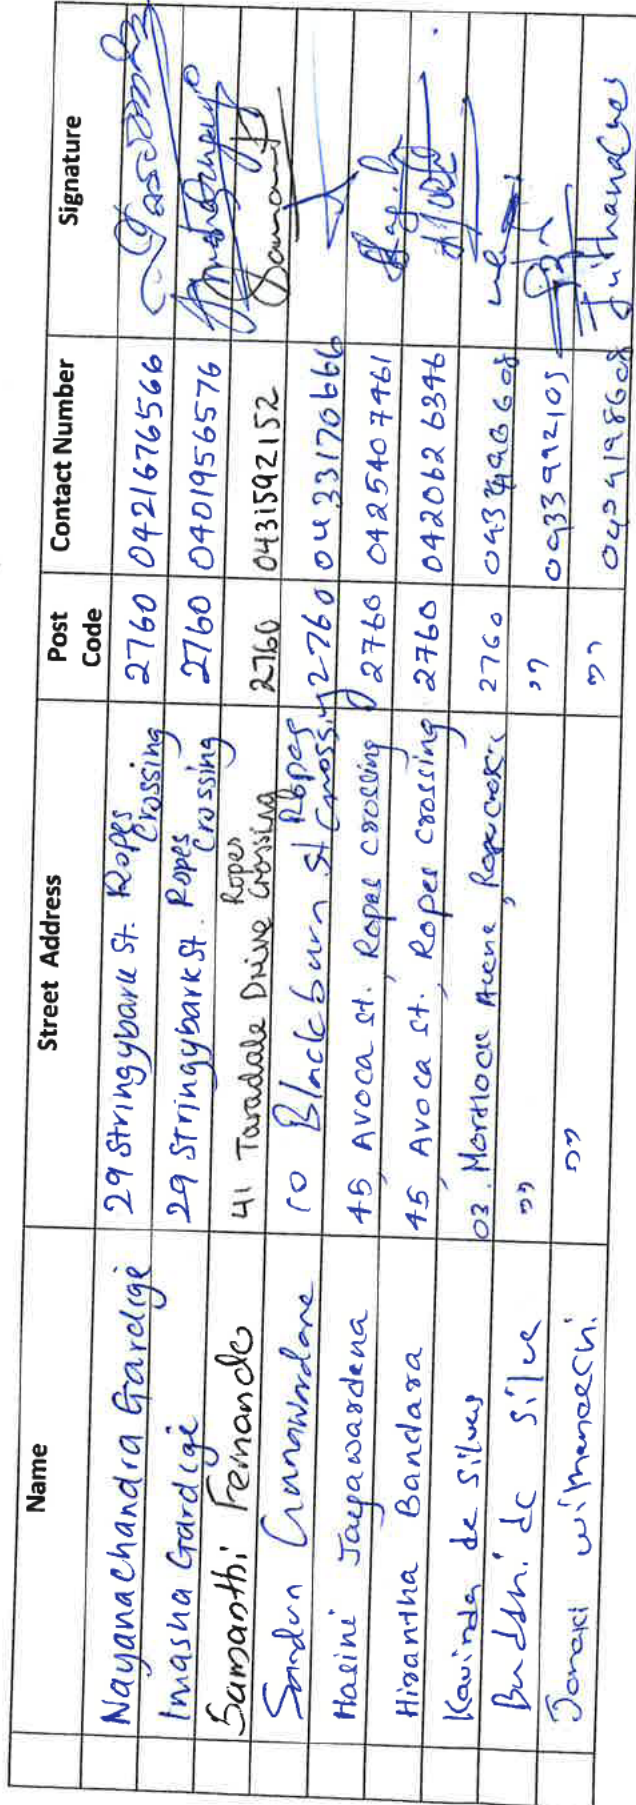 Name Street Address Post Code Contact Number Signature
Nayanachandra Gardige 29 Stringybark St. Ropes Crossing 2760 0421676566
Imasha Gardige 29 Stringybark St. Ropes Crossing 2760 0401956576
Samanthi Fernando 41 Taradale Drive Ropes Crossing 2760 0431592152
Sandun Gunawardane 10 Blackburn St Ropes Crossing 2760 0433170666
Hasini Jayawardena 45, Avoca St. Ropes Crossing 2760 0425407461
Hirantha Bandara 45, Avoca St. Ropes Crossing 2760 0420626346
Kavinda de Silva 03. Mortlock 2760
Buddhi de Silva " " 0433992105
Janaki " "